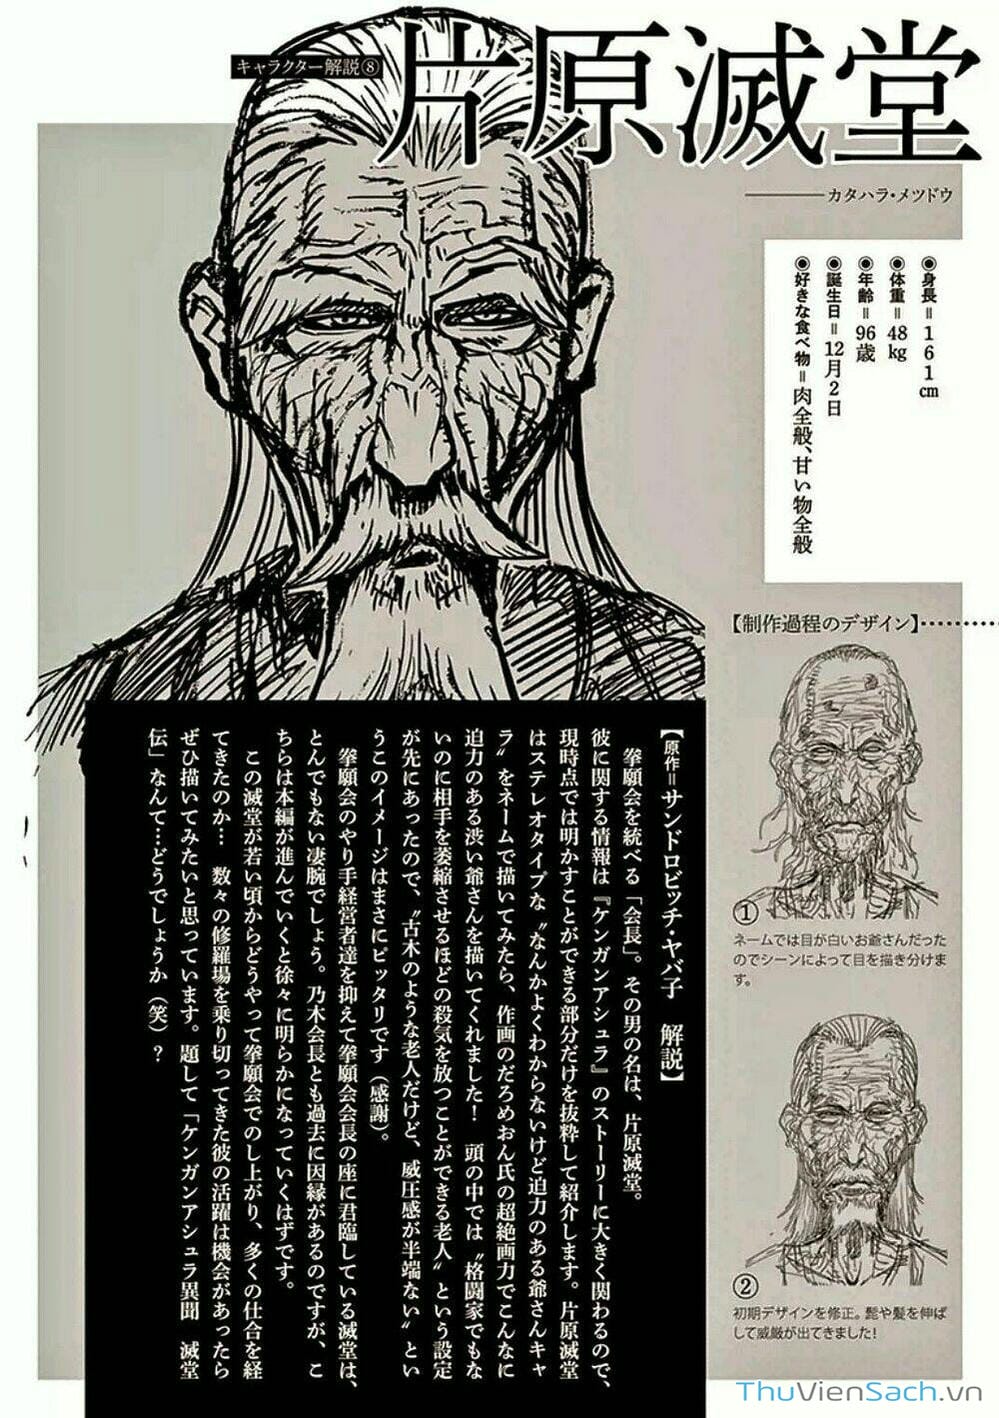 キャラクター解説⑧
片原滅堂
カタハラ・メツドウ
◉身長=161cm
◉体重=48kg
◉年齢=96歳
◉誕生日=12月2日
◉好きな食べ物=肉全般、甘い物全般
【原作=サンドロビッチ・ヤバ子 解説】
拳願会を統べる「会長」。その男の名は、片原滅堂。
彼に関する情報は『ケンガンアシュラ』のストーリーに大きく関わるので、
現時点では明かすことができる部分だけを抜粋して紹介します。片原滅堂
はステレオタイプな〝なんかよくわからないけど迫力のある爺さんキャ
ラ〟をネームで描いてみたら、作画のだろめおん氏の超絶画力でこんなに
迫力のある渋い爺さんを描いてくれました! 頭の中では〝格闘家でもな
いのに相手を萎縮させるほどの殺気を放つことができる老人〟という設定
が先にあったので、〝古木のような老人だけど、威圧感が半端ない〟とい
うこのイメージはまさにピッタリです(感謝)。
拳願会のやり手経営者達を抑えて拳願会会長の座に君臨している滅堂は、
とんでもない凄腕でしょう。乃木会長とも過去に因縁があるのですが、こ
ちらは本編が進んでいくと徐々に明らかになっていくはずです。
この滅堂が若い頃からどうやって拳願会でのし上がり、多くの仕合を経
てきたのか… 数々の修羅場を乗り切ってきた彼の活躍は機会があったら
ぜひ描いてみたいと思っています。題して「ケンガンアシュラ異聞 滅堂
伝」なんて…どうでしょうか(笑)?
【制作過程のデザイン】
①
ネームでは目が白いお爺さんだった
のでシーンによって目を描き分けま
す。
②
初期デザインを修正。髭や髪を伸ば
して威厳が出てきました!
ThuVienSach.vn